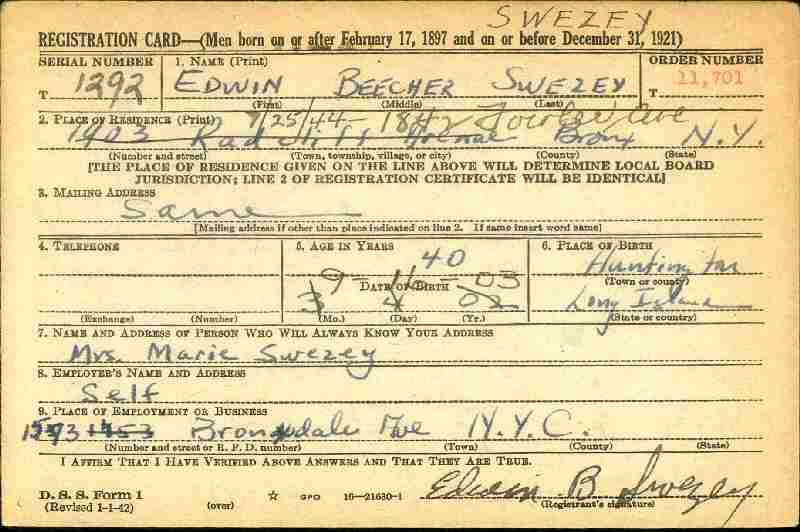 SWEZEY
REGISTRATION CARD—(Men born on or after February 17, 1897 and on or before December 31, 1921)
SERIAL NUMBER
1. NAME (Print)
ORDER NUMBER
T 1292
EDWIN BEECHER SWEZEY
T 11,701
(First) (Middle) (Last)
2. PLACE OF RESIDENCE (Print) 9/25/44-1842 Fowler Ave
1903 Radcliff Avenue Bronx N.Y.
(Number and street) (Town, township, village, or city) (County) (State)
[THE PLACE OF RESIDENCE GIVEN ON THE LINE ABOVE WILL DETERMINE LOCAL BOARD
JURISDICTION; LINE 2 OF REGISTRATION CERTIFICATE WILL BE IDENTICAL]
3. MAILING ADDRESS
Same
[Mailing address if other than place indicated on line 2. If same insert word same]
4. TELEPHONE
5. AGE IN YEARS
6. PLACE OF BIRTH
40
Huntington
9-14-03
(Town or county)
DATE OF BIRTH
3 4 02
Long Island
(Exchange) (Number)
(Mo.) (Day) (Yr.)
(State or country)
7. NAME AND ADDRESS OF PERSON WHO WILL ALWAYS KNOW YOUR ADDRESS
Mrs. Marie Swezey
8. EMPLOYER'S NAME AND ADDRESS
Self
9. PLACE OF EMPLOYMENT OR BUSINESS
1453 Bronxdale Ave N.Y.C.
(Number and street or R. F. D. number) (Town) (County) (State)
I AFFIRM THAT I HAVE VERIFIED ABOVE ANSWERS AND THAT THEY ARE TRUE.
Edwin B Swezey
D. S. S. Form 1
(Revised 1-1-42) (over) ☆ GPO 16—21630-1 (Registrant's signature)